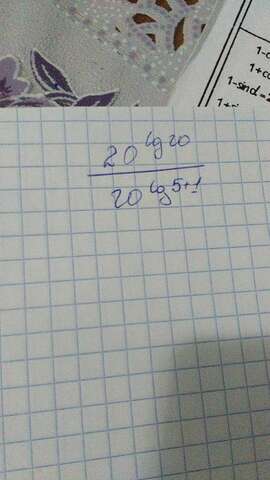 1-
1+co
1-sinα=
1+
20^lg 20
20^lg 5+1